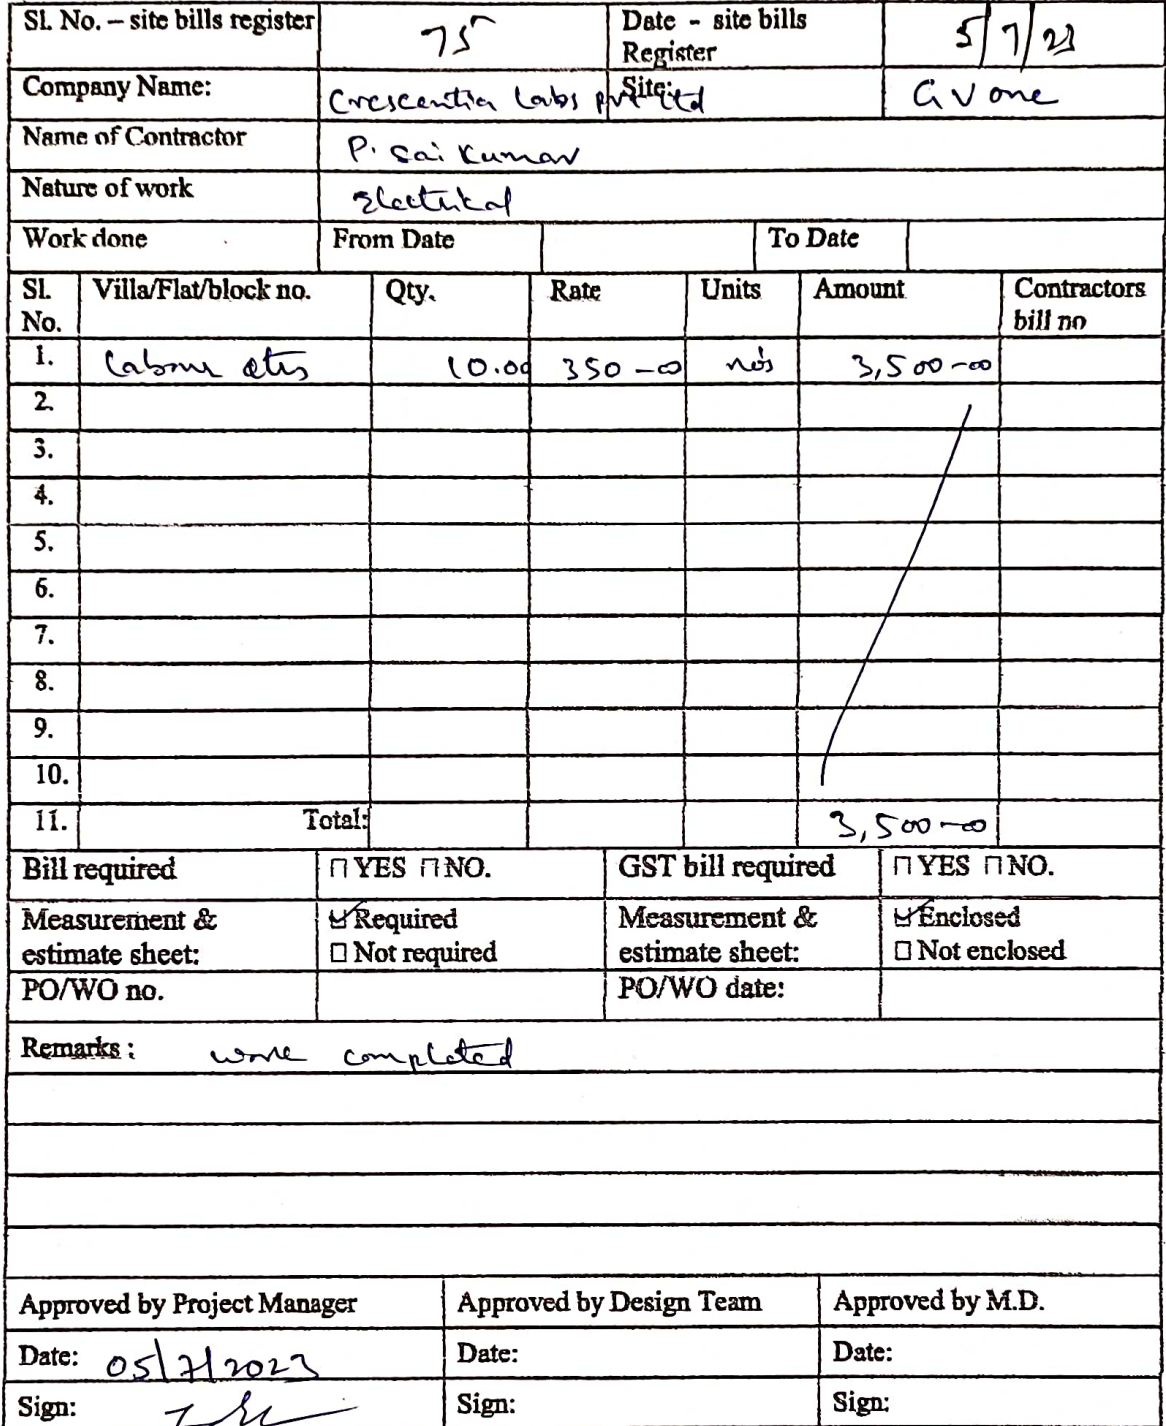 Sl. No. – site bills register 75 Date - site bills Register 5/7/23
Company Name: Crescentia Labs pvt ltd Site: GV one
Name of Contractor P. Sai Kumar
Nature of work Electrical
Work done From Date To Date
Sl. No. Villa/Flat/block no. Qty. Rate Units Amount Contractors bill no
1. Labour 10.00 350-00 nos 3,500-00
2.
3.
4.
5.
6.
7.
8.
9.
10.
11. Total: 3,500-00
Bill required □ YES □ NO. GST bill required □ YES □ NO.
Measurement & estimate sheet: ☑ Required □ Not required Measurement & estimate sheet: ☑ Enclosed □ Not enclosed
PO/WO no. PO/WO date:
Remarks : work completed
Approved by Project Manager Approved by Design Team Approved by M.D.
Date: 05/7/2023 Date: Date:
Sign: Sign: Sign: